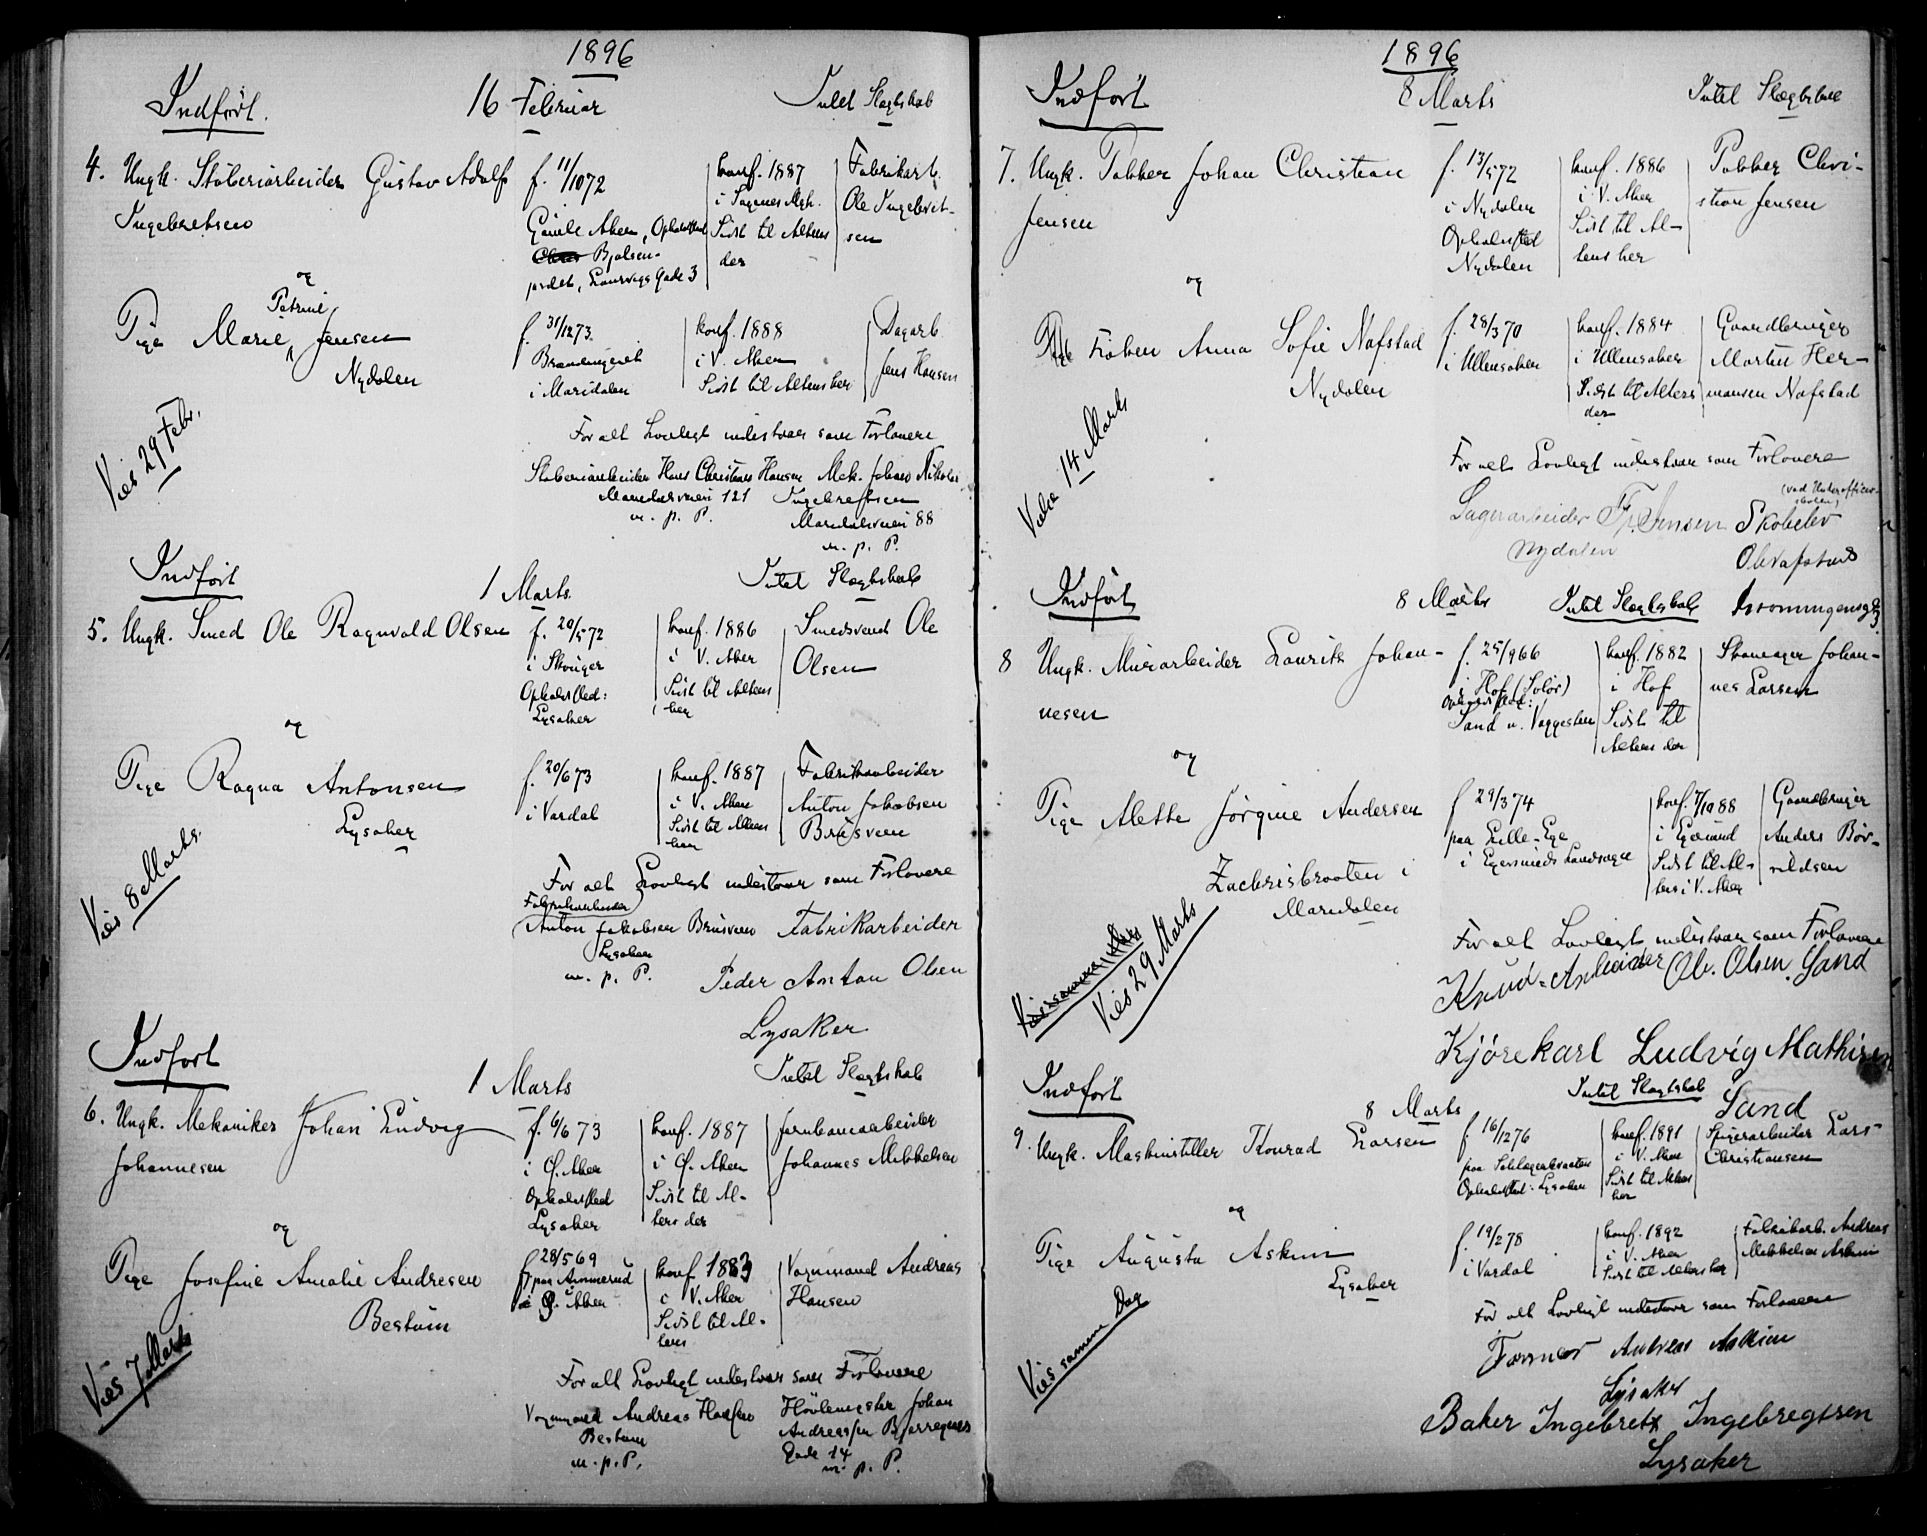 1896
Indført. 16 Februar Intet Slægtskab
4. Ungk. Støberiarbeider Gustav Adolf
Ingebretsen
f. 11/10 72
Gamle Aker, Opholdssted
Bjølsen-
jordet, Laurvigs Gade 3
konf. 1887
i Sagenes Mgh.
Sidst til Alters
der
Fabrikarb.
Ole Ingebret-
sen
og
Petrine
Pige Marie Jensen
Nydalen
f. 31/12 73.
i Maridalen
konf. 1888
i V. Aker
Sidst til Alters her
Dagarb.
Jens Hansen
Vies 29 Febr.
For alt Lovligt indestaar som Forlovere
Støberiarbeider Hans Christian Hansen
Maridalsveien 121
m. p. P.
Mek. Johan Nikolai
Ingebretsen
Maridalsveien 88
m. p. P.
Indført 1 Marts. Intet Slægtskab
5. Ungk. Smed Ole Ragnvald Olsen
f. 20/5 72
i Skouger
Opholdssted:
Lysaker
konf. 1886
i V. Aker
Sidst til Alters
her
Smedsvend Ole
Olsen
og
Pige Ragna Antonsen
Lysaker
f. 20/6 73
i Vardal
konf. 1887
i V. Aker
Sidst til Alters
her
Fabrikarbeider
Anton Jakobsen
Brusveen
Vies 8 Marts.
For alt Lovligt indestaar som Forlovere
Fabrikarbeider
Anton Jakobsen Brusveen
Lysaker
m. p. P.
Fabrikarbeider
Peder Anton Olsen
Lysaker
Indført 1 Marts Intet Slægtskab
6. Ungk. Mekaniker Johan Ludvig
Johannesen
f. 6/6 73
i Ø. Aker
Opholdssted
Lysaker
konf. 1887
i Ø. Aker
Sidst til Al-
ters der
Jernbanearbeider
Johannes Mikkelsen
og
Pige Josefine Amalie Andresen
Bestum
f. 28/5 69
paa Ammerud
i Ø. Aker
konf. 1883
i V. Aker
Sidst til Al-
ters
Vognmand Andreas
Hansen
Vies 7 Marts
For alt Lovligt indestaar som Forlovere
Vognmand Andreas Hansen
Bestum
m. p. P.
Høvlemester Johan
Andreassen Bjerregaards
Gade 14
m. p. P.
1896
Indført 8 Marts Intet Slægtskab
7. Ungk. Pakker Johan Christian
Jensen
f. 13/5 72
i Nydalen
Opholdssted
Nydalen
konf. 1886
i V. Aker
Sidst til Al-
ters her
Pakker Chri-
stian Jensen
og
Frøken Anna Sofie Nafstad
Nydalen
f. 28/3 70
i Ullensaker
konf. 1884
i Ullensaker
Sidst til Alters
der
Gaardbruger
Martin Her-
mansen Nafstad
Viede 14 Marts
For alt Lovligt indestaar som Forlovere
Lagerarbeider Fr. Jensen
Nydalen
(ved Underofficer-
skolen)
Skoelev
O. Nafstad
Indført 8 Marts Intet Slægtskab
8 Ungk. Murarbeider Laurits Johan-
nesen
f. 25/9 66
i Hof (Solør)
Opholdssted:
Sand v. Væggesten
konf. 1882
i Hof
Sidst til
Alters der
Skomager Johan-
nes Larsen
og
Pige Alette Jørgine Andersen
Zachrisbraaten i
Maridalen
f. 29/3 74
paa Lille-Ege
i Egersunds Landsogn
konf. 7/10 88
i Egersund
Sidst til Al-
ters i V. Aker
Gaardbruger
Anders Bør-
rildsen
Vies 29 Marts
For alt Lovligt indestaar som Forlovere
Knud-Arbeider Ole Olsen. Sand
Kjørekarl Ludvig Mathisen
Sand
Indført 8 Marts Intet Slægtskab
9. Ungk. Maskinstiller Konrad Larsen
f. 16/12 76
Opholdssted: Lysaker
konf. 1891
i V. Aker
Sidst til Alters
her
Spigerarbeider Lars
Christiansen
og
Pige Augusta Askim
Lysaker
f. 19/2 78
i Vardal
konf. 1892
i V. Aker
Sidst til Alters her
Fabrikarb. Andreas
Mikkelsen Askim
Vies samme Dag
For alt Lovligt indestaar som Forlovere
Former Andreas Askim
Lysaker
Baker Ingebret Ingebregtsen
Lysaker